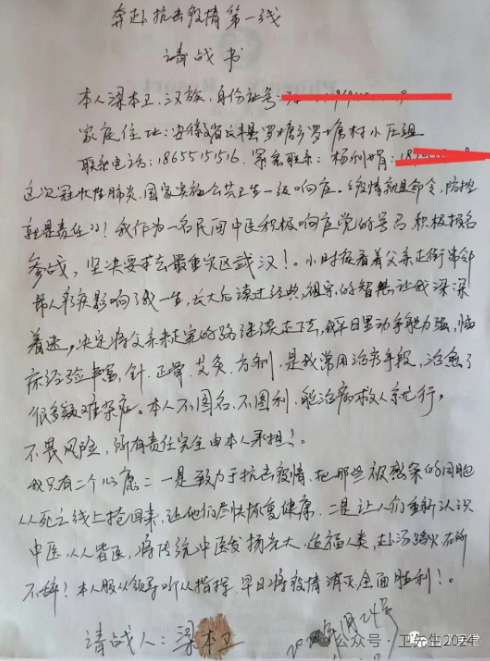 奔赴抗击疫情第一线
请战书
本人梁本卫，汉族，身份证号：
家庭住址：安徽省长丰县罗塘乡罗塘村小庄组
联系电话：1865515516. 紧急联系：杨利娟：
这次冠状肺炎，国家实施公共卫生一级响应。疫情就是命令，防控
就是责任！我作为一名民间中医积极响应党的号召积极报名
参战，坚决要求去最重灾区武汉！。小时候看着父亲走街串邻
帮人看疾影响了我一生，长大后读过经典，祖宗的智慧让我深深
着迷，决定将父亲未走完的路继续走下去，我平日里动手能力强，临
床经验丰富，针、正骨、艾灸、方剂，是我常用治病手段，治愈了
很多疑难杂症。本人不图名、不图利，能治病救人就行，
不畏风险，所有责任完全由本人承担！。
我只有二个心愿：一是致力于抗击疫情，把那些被感染的同胞
从死亡线上抢回来，让他们尽快恢复健康，二是让人们重新认识
中医，人人皆医，将传统中医发扬光大，造福人类，赴汤蹈火在所
不辞！本人服从领导听从指挥，早日将疫情消灭，全面胜利！。
请战人：梁本卫
公众号·卫先生202